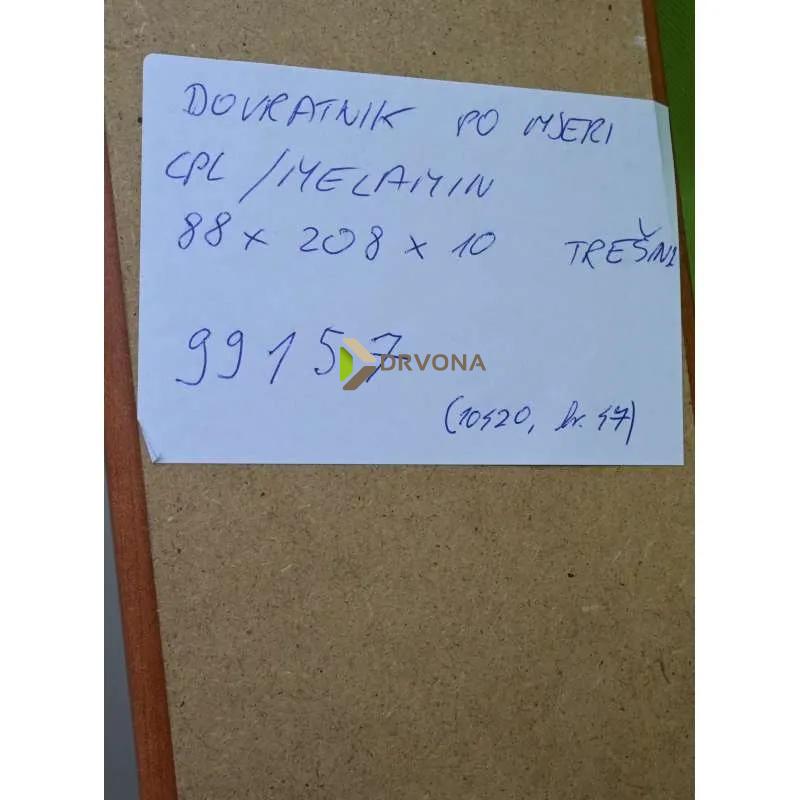 DOVRATNIK PO MJERI
CPL / MELAMIN
88 x 208 x 10 TREŠNJ
99157
DRVONA
(10420, br. 47)